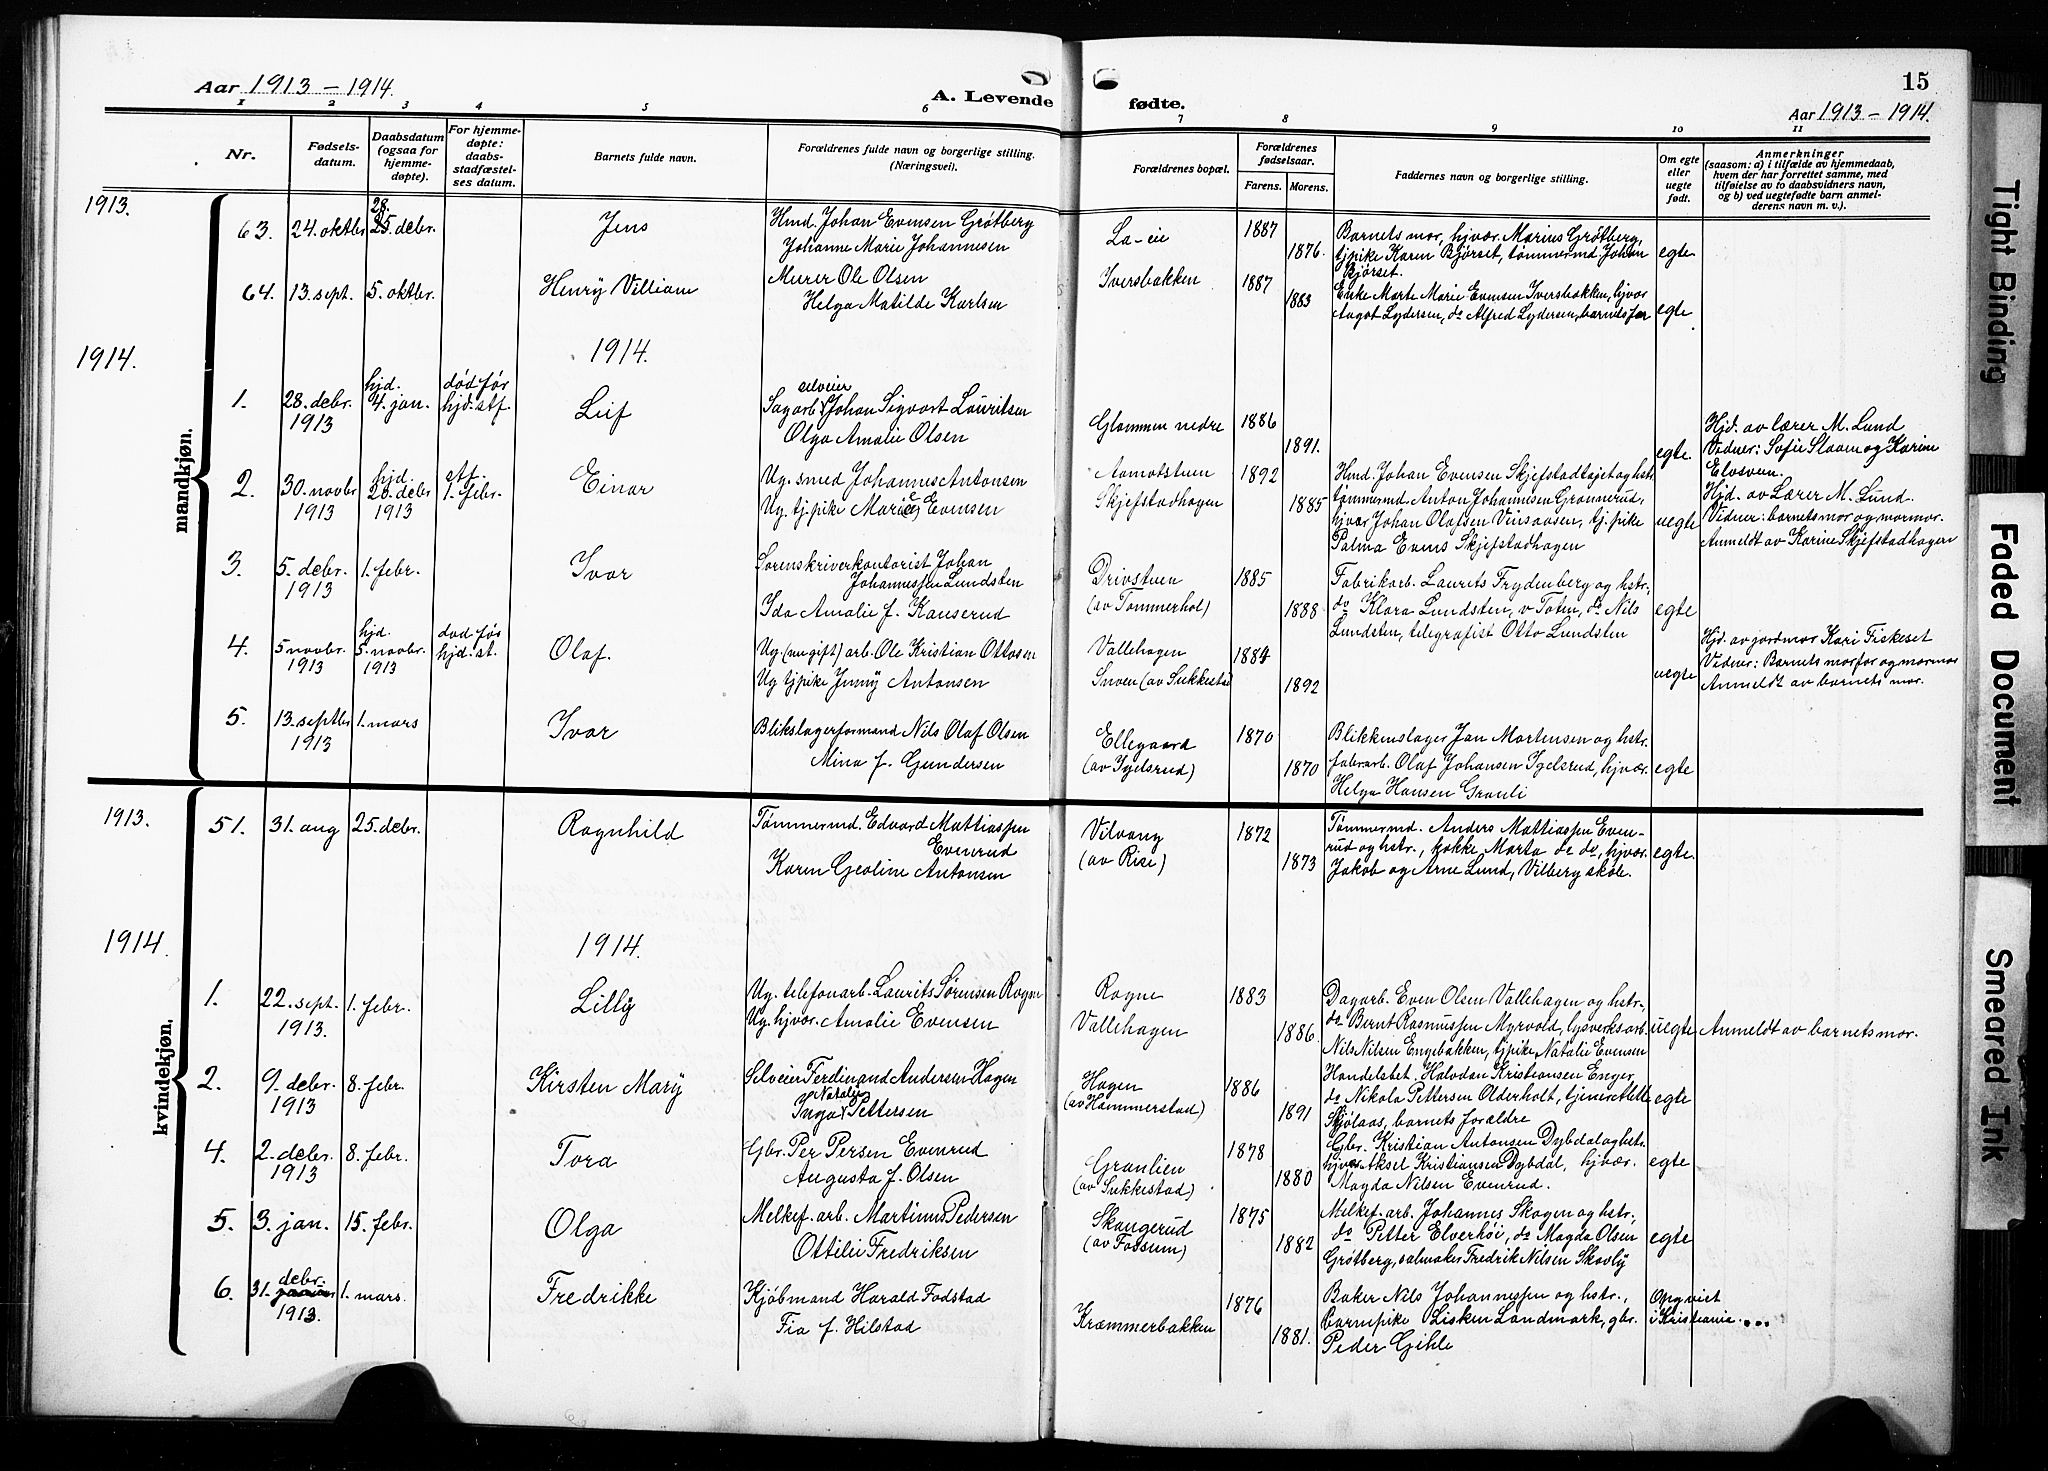 Aar 1913 – 1914.
A. Levende fødte.
15
Aar 1913 – 1914.
1 2 3 4 5 6 7 8 9 10 11
Nr.
Fødselsdatum.
Daabsdatum (ogsaa for hjemmedøpte).
For hjemmedøpte: daabsstadfæstelses datum.
Barnets fulde navn.
Forældrenes fulde navn og borgerlige stilling. (Næringsvei).
Forældrenes bopæl.
Forældrenes fødselsaar.
Farens. Morens.
Faddernes navn og borgerlige stilling.
Om egte eller uegte født.
Anmerkninger
(saasom: a) i tilfælde av hjemmedaab, hvem der har forrettet samme, med tilføielse av to daabsvidners navn, og b) ved uegtefødte barn anmelderens navn m. v.).
mandkjøn.
1913.
63. 24. oktbr. 28. 25. debr. Jens
Hmd. Johan Evensen Grøtberg
Johanne Marie Johannesen
La-eie 1887 1876
Barnets mor, hjvær. Marius Grøtberg,
tjpike Karen Bjørset, tømmermd. Johan
Bjørset.
egte
64. 13. sept. 5. oktbr. Henry Villiam
Murer Ole Olsen
Helga Matilde Karlsen
Iversbakken 1887 1883
Enke Marte Marie Evensen Iversbakken, hjvær
Aagot Lydersen, do Alfred Lydersen, barnets far
egte
1914.
1914.
1. 28. debr. 1913 hjd. 4. jan. død før hjd. stf. Leif
Sagarb. selveier Johan Sigvart Lauritsen
Olga Amalie Olsen
Glommen nedre 1886 1891.
egte
Hjd. av lærer M. Lund
Vidner: Sofie Slaam og Karine
Elvsveen.
2. 30. novbr 1913 hjd. 20. debr 1913 stf. 1. febr. Einar
Ug. smed Johannes Antonsen
Ug. tj.pike Marie Evensen
Aamotstuen
Skjefstadhagen
1892 1885
Hmd. Johan Evensen Skjefstadtajet og hstr.
tømmermd. Anton Johannesen Grønnerud,
hjvær Johan Olafsen Vinsaasen, tj. pike
Palma Evens Skjefstadhagen
uegte
Hjd. av Lærer M. Lund.
Vidner: barnets mor og mormor.
Anmeldt av Karine Skjefstadhagen
3. 5. debr. 1913 1. febr. Ivar
Sorenskriverkontorist Johan
Johannessen Lundsten
Ida Amalie f. Kauserud
Drivstuen
(av Tømmerhol)
1885 1888
Fabrikarb. Laurits Frydenberg og hstr.,
do Klara Lundsten, v Toten, do Nils
Lundsten, telegrafist Otto Lundsten
egte
4. 5 novbr. 1913 hjd. 5. novbr. 1913 død før hjd. st. Olaf.
Ug. (ungift) arb. Ole Kristian Ottosen
Ug tjpike Jenny Antonsen
Vallehagen
Snven (av Sukkestad
1884 1892
uegte
Hjd. av jordmor Kari Fiskeset
Vidner: Barnets morfar og mormor
Anmeldt av barnets mor.
5. 13. septbr 1913 1. mars Ivar
Blikslagerformand Nils Olaf Olsen
Mina f. Gundersen
Ellegaard
(av Igelsrud)
1870 1870
Blikkenslager Jan Martensen og hstr.
fabrarb. Olaf Johansen Igelsrud, hjvær.
Helga Hansen Granli
egte
kvindekjøn.
1913.
51. 31. aug 25. debr. Ragnhild
Tømmermd. Edvard Mattiassen
Evenrud
Karen Geoline Antonsen
Vilvang
(av Rise)
1872 1873
Tømmermd. Anders Mattiassen Evenrud
og hstr., kokke Marta do do, hjvær.
Jakob og Arne Lund, Vilberg skole.
egte.
1914.
1914.
1. 22. sept. 1913. 1. febr. Lilly
Ug. telefonarb. Laurits Sørensen Rogne
Ug. hjvær. Amalie Evensen
Rogne
Vallehagen
1883 1886
Dagarb. Even Olsen Vallehagen og hstr.,
do Bernt Rasmussen Myrvold, lysverksarb.
Nils Nilsen Engebakken, tjpike Natalie Evensen
uegte
Anmeldt av barnets mor.
2. 9. debr. 1913 8. febr. Kirsten Mary
Selveier Ferdinand Andersen Hagen
Inga Natalie Pettersen
Hagen
(av Hammerstad)
1886 1891
Handelsbet. Halvdan Kristiansen Enger
do Nikola Pettersen Olderholt, tjeneretlette
Skjølaas, barnets forældre
egte
4. 2. debr. 1913 8. febr. Tora
Gbr. Per Persen Evenrud
Augusta f. Olsen
Granlien
(av Sukkestad)
1878 1880
Gbr. Kristian Antonsen Dybdal og hstr.
hjvær Aksel Kristiansen Dybdal, hjvær.
Magda Nilsen Evenrud.
egte
5. 3. jan. 15. febr. Olga
Melkef. arb. Martinus Pedersen
Ottilie Fredriksen
Skaugerud
(av Fossum)
1875 1882
Melkef. arb. Johannes Skogen og hstr.,
do Petter Elverhøi, do Magda Olsen
Grøtberg, salmaker Fredrik Nilsen Skovly
egte
6. 31. debr. 1913. 1. mars. Fredrikke
Kjøbmand Harald Fodstad
Fia f. Hilstad
Kræmmerbakken 1876 1881.
Baker Nils Johannessen og hstr.,
barnepike Lisken Landmark, gbr.
Peder Gihle
Opgviet
i Kristiania....
Tight Binding
Faded Document
Smeared Ink